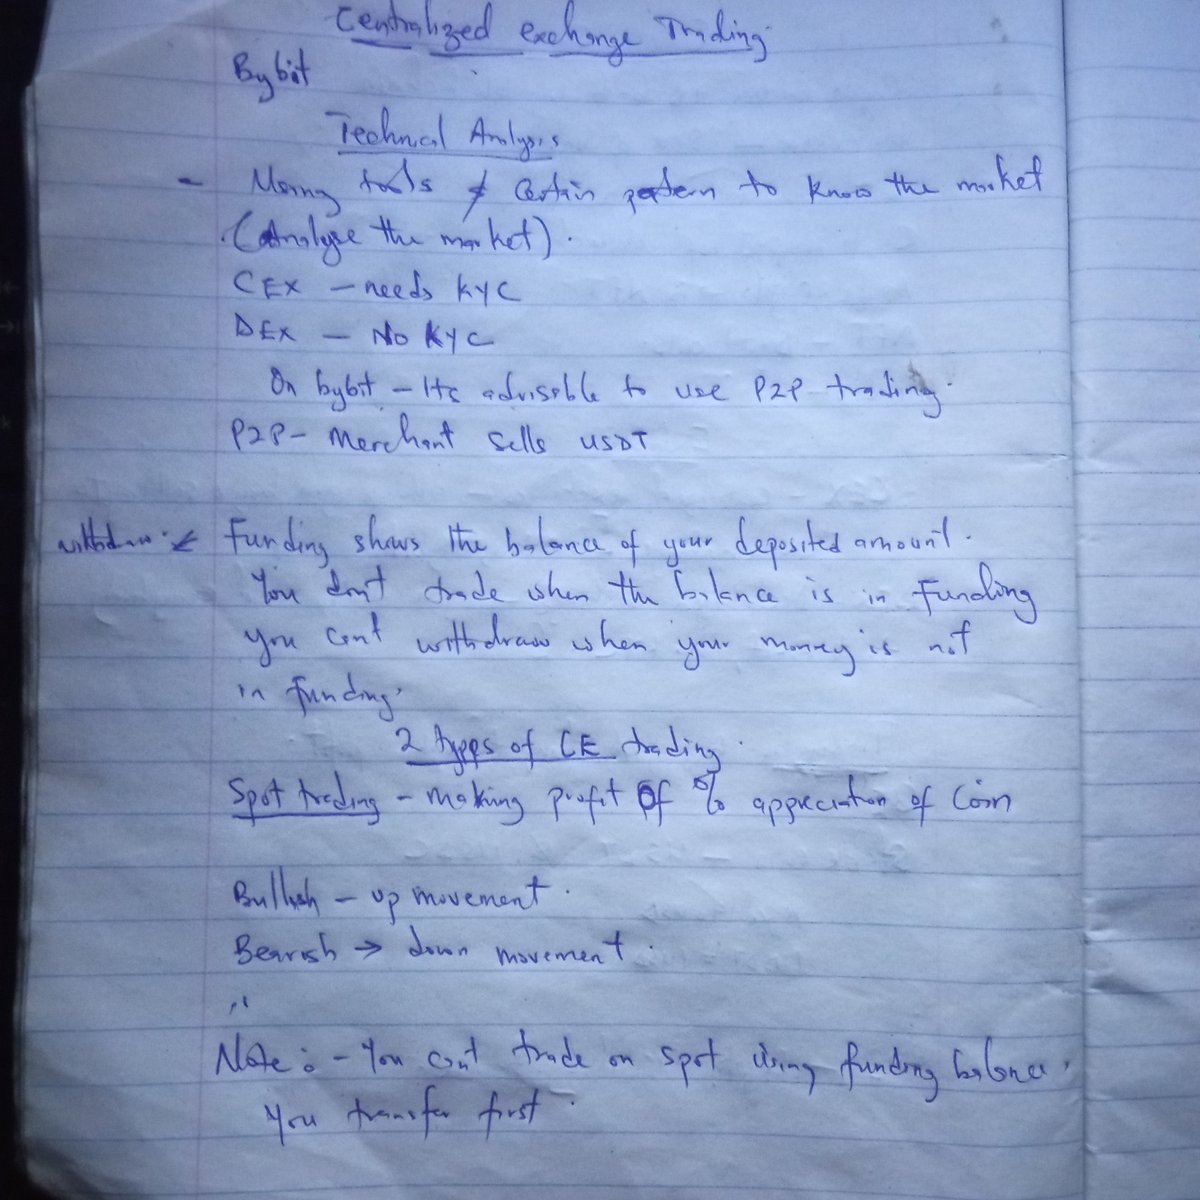 Centralized exchange Trading.
Bybit
Technical Analysis
- tools & Certain pattern to know the market
(Analyse the market).
CEX - needs KYC
DEX - No KYC
On bybit - Its advisable to use P2P trading.
P2P - Merchant sells USDT
withdraw Funding shows the balance of your deposited amount.
You don't trade when the balance is in Funding
you can't withdraw when your money is not
in funding.
2 types of CE trading.
Spot trading - making profit of % appreciation of Coin
Bullish - up movement.
Bearish → down movement.
"
Note: - You can't trade on spot using funding balance.
You transfer first.